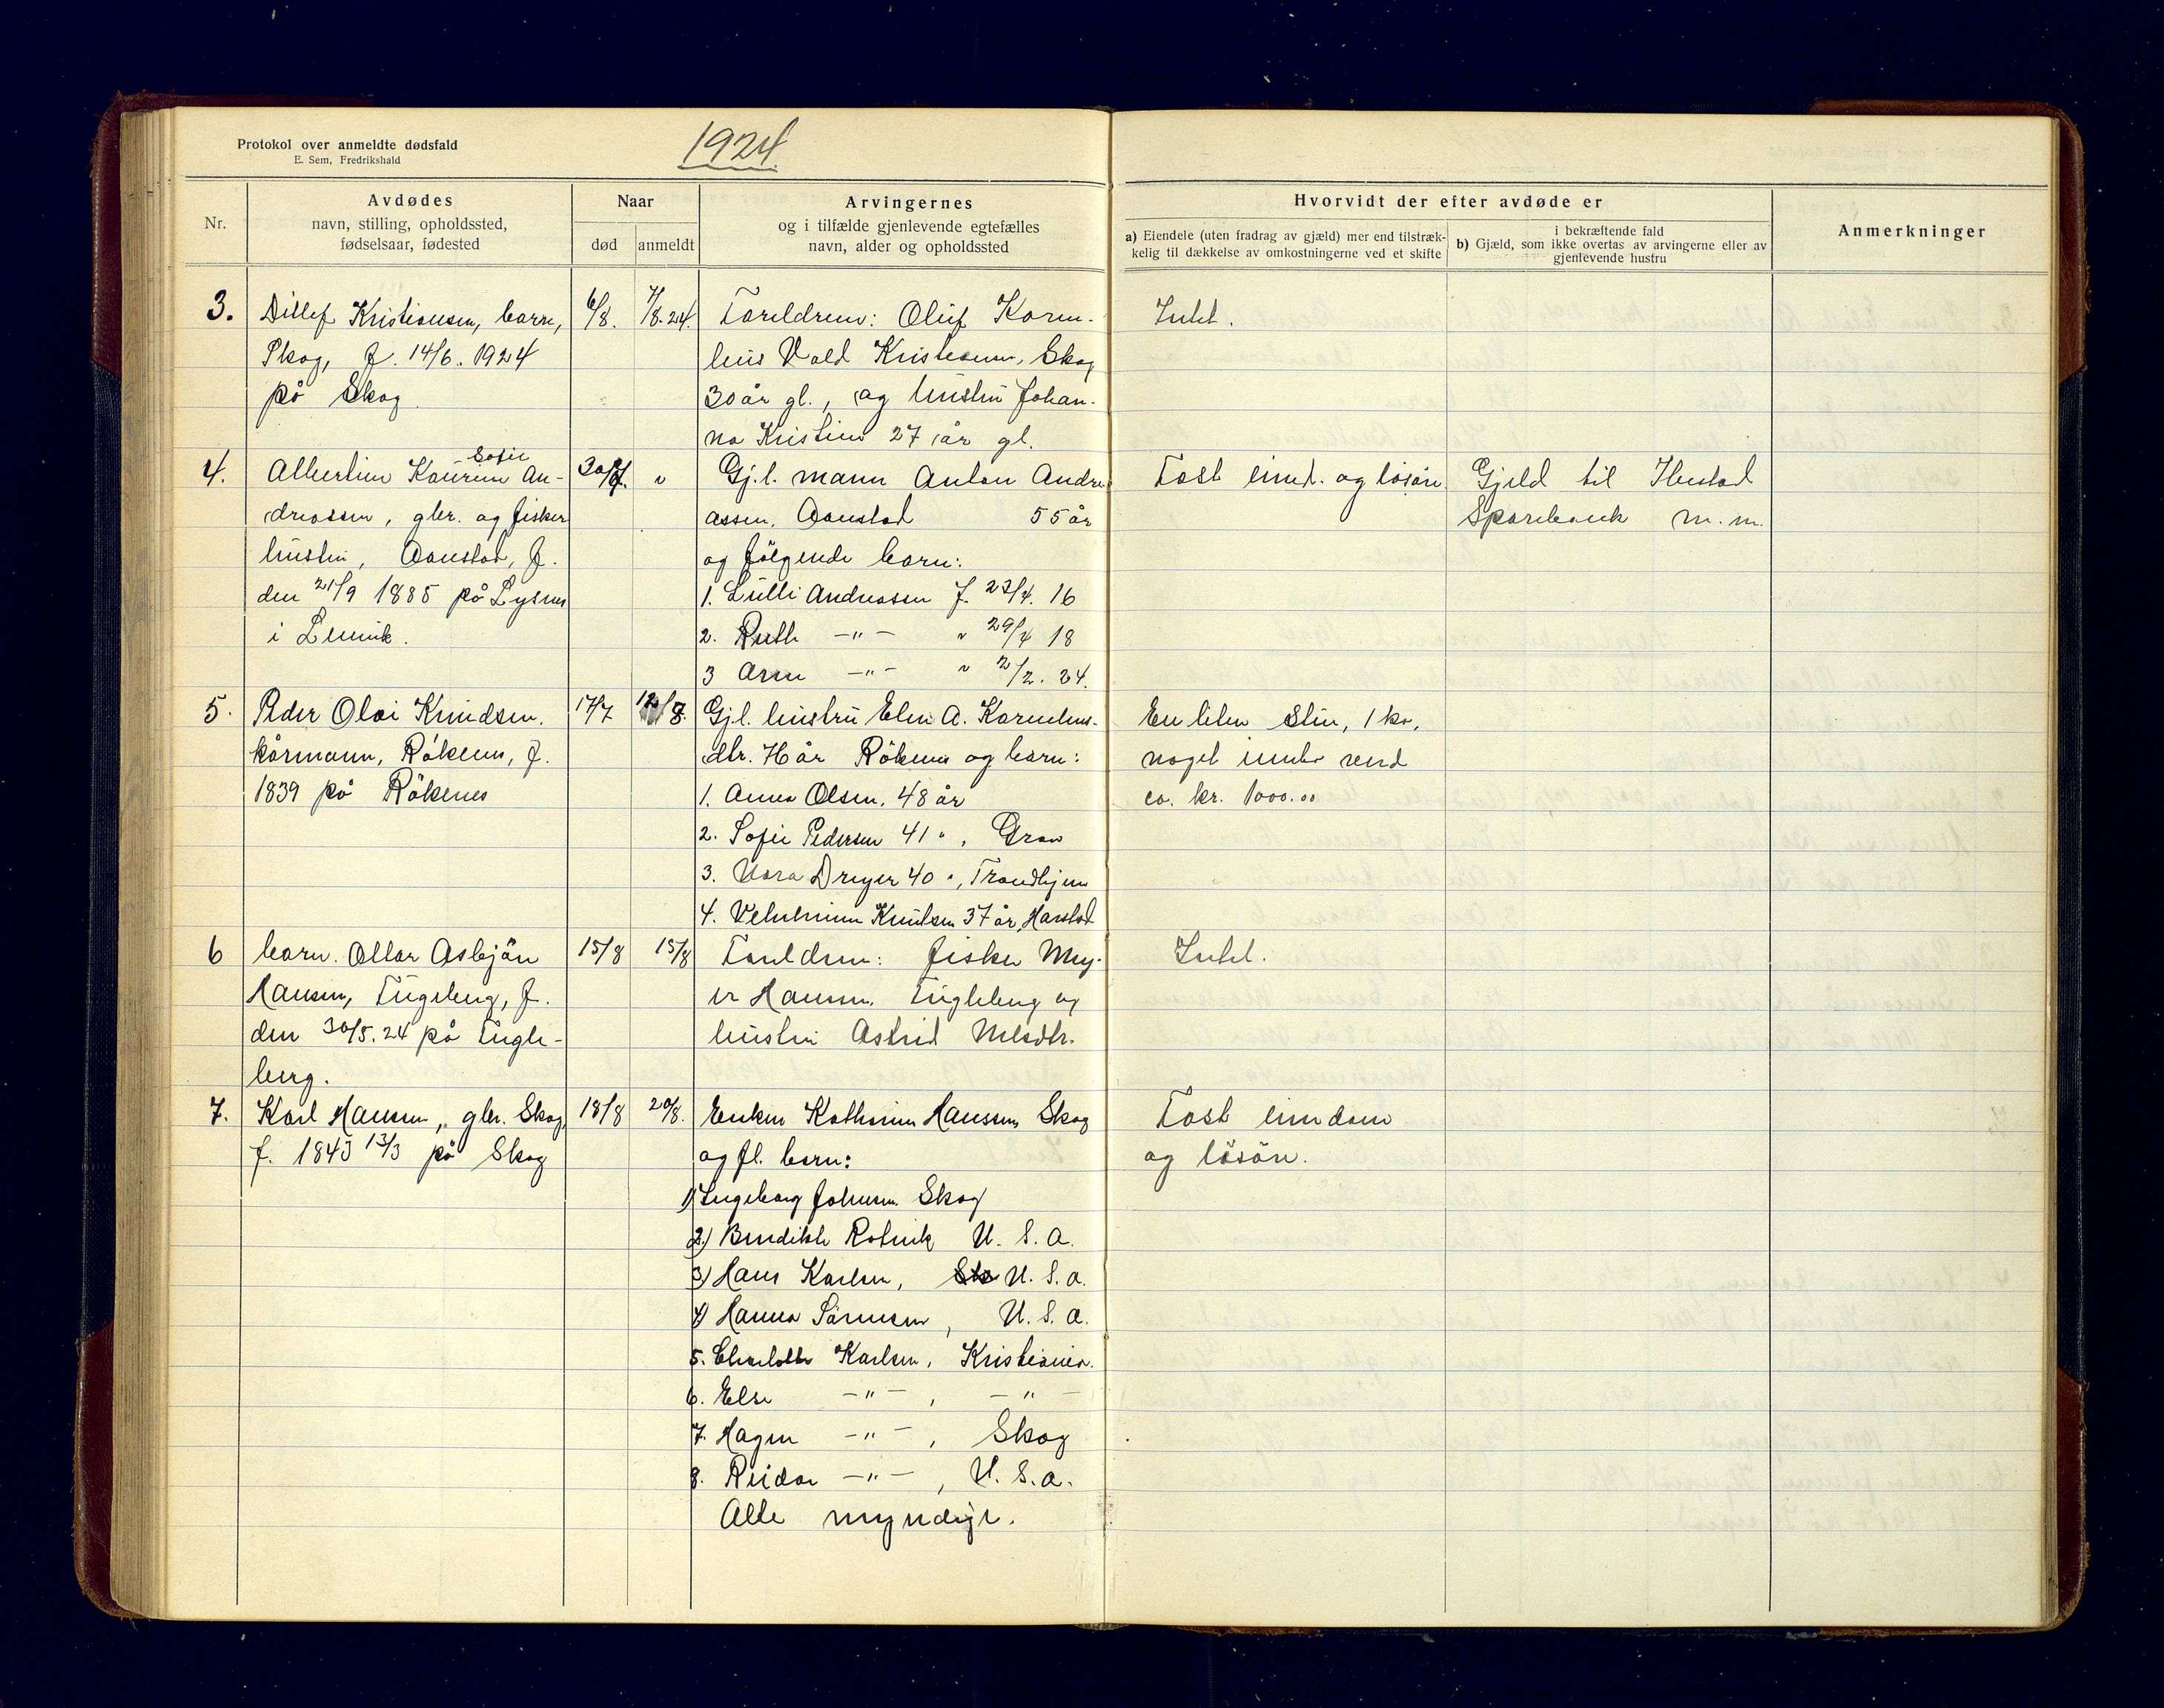 Protokol over anmeldte dødsfald
E. Sem, Fredrikshald
1924
Nr.
Avdødes
navn, stilling, opholdssted,
fødselsaar, fødested
Naar
død
anmeldt
Arvingernes
og i tilfælde gjenlevende egtefælles
navn, alder og opholdssted
Hvorvidt der efter avdøde er
a) Eiendele (uten fradrag av gjæld) mer end tilstræk-
kelig til dækkelse av omkostningerne ved et skifte
i bekræftende fald
b) Gjæld, som ikke overtas av arvingerne eller av
gjenlevende hustru
Anmerkninger
3.
Ditlef Kristiansen, barn,
Skog, f. 14/6. 1924
på Skog.
6/8.
7/8.24.
Foreldrene: Oluf Korne-
lius Vold Kristiansen, Skog
30 år gl., og hustru Johan-
na Kristine 27 år gl.
Intet.
4.
Sofie
Albertine Kaurine An-
dreassen, gbr. og fisker
hustru, Aanstad, f.
den 21/9 1885 på Lysnes
i Lenvik.
30/7.
"
Gj.l. mann Anton Andre
assen, Aanstad 55 år
og følgende barn:
1. Lulli Andreassen f. 23/4. 16
2. Ruth —"— " 29/4 18
3 Arne —"— " 2/2. 24.
Fast eiend. og løsøre
Gjeld til Ibestad
Sparebank m.m.
5.
Peder Olai Knudsen.
kårmann, Råkenes, f.
1839 på Råkenes
17/7
12/8
Gj.l. hustru Elen A. Kornelius-
dtr. 76 år Råkenes og barn:
1. Anna Olsen, 48 år
2. Sofie Pedersen 41 ", Grav
3. Nora Dreyer 40 ", Trondhjem
4. Knutsen 37 år, Harstad
En liten stue, 1 ko,
noget innbo verd
ca. kr. 1000.00
6
barn. Ottar Asbjørn
Hansen, Fugleberg, f.
den 30/5.24 på Fugle-
berg.
15/8
15/8
Foreldrene: fisker Mey-
er Hansen, Fugleberg og
hustru Astrid Nilsdtr.
Intet.
7.
Karl Hansen, gbr. Skog
f. 1843 13/3 på Skog
18/8
20/8.
Enken Katharine Hanssen, Skog
og fl. barn:
1) Ingeborg Johnsen Skog
2) Bendikte Rotvik U. S. A.
3) Hans Karlsen, U. S. A.
4) Hanna Sørensen, U. S. A.
5. Charlotte Karlsen, Kristiania.
6. Else —"—, —"—
7. Hagen —"—, Skog
8. Reidar —"—, U. S. A.
Alle myndige.
Fast eiendom
og løsøre.